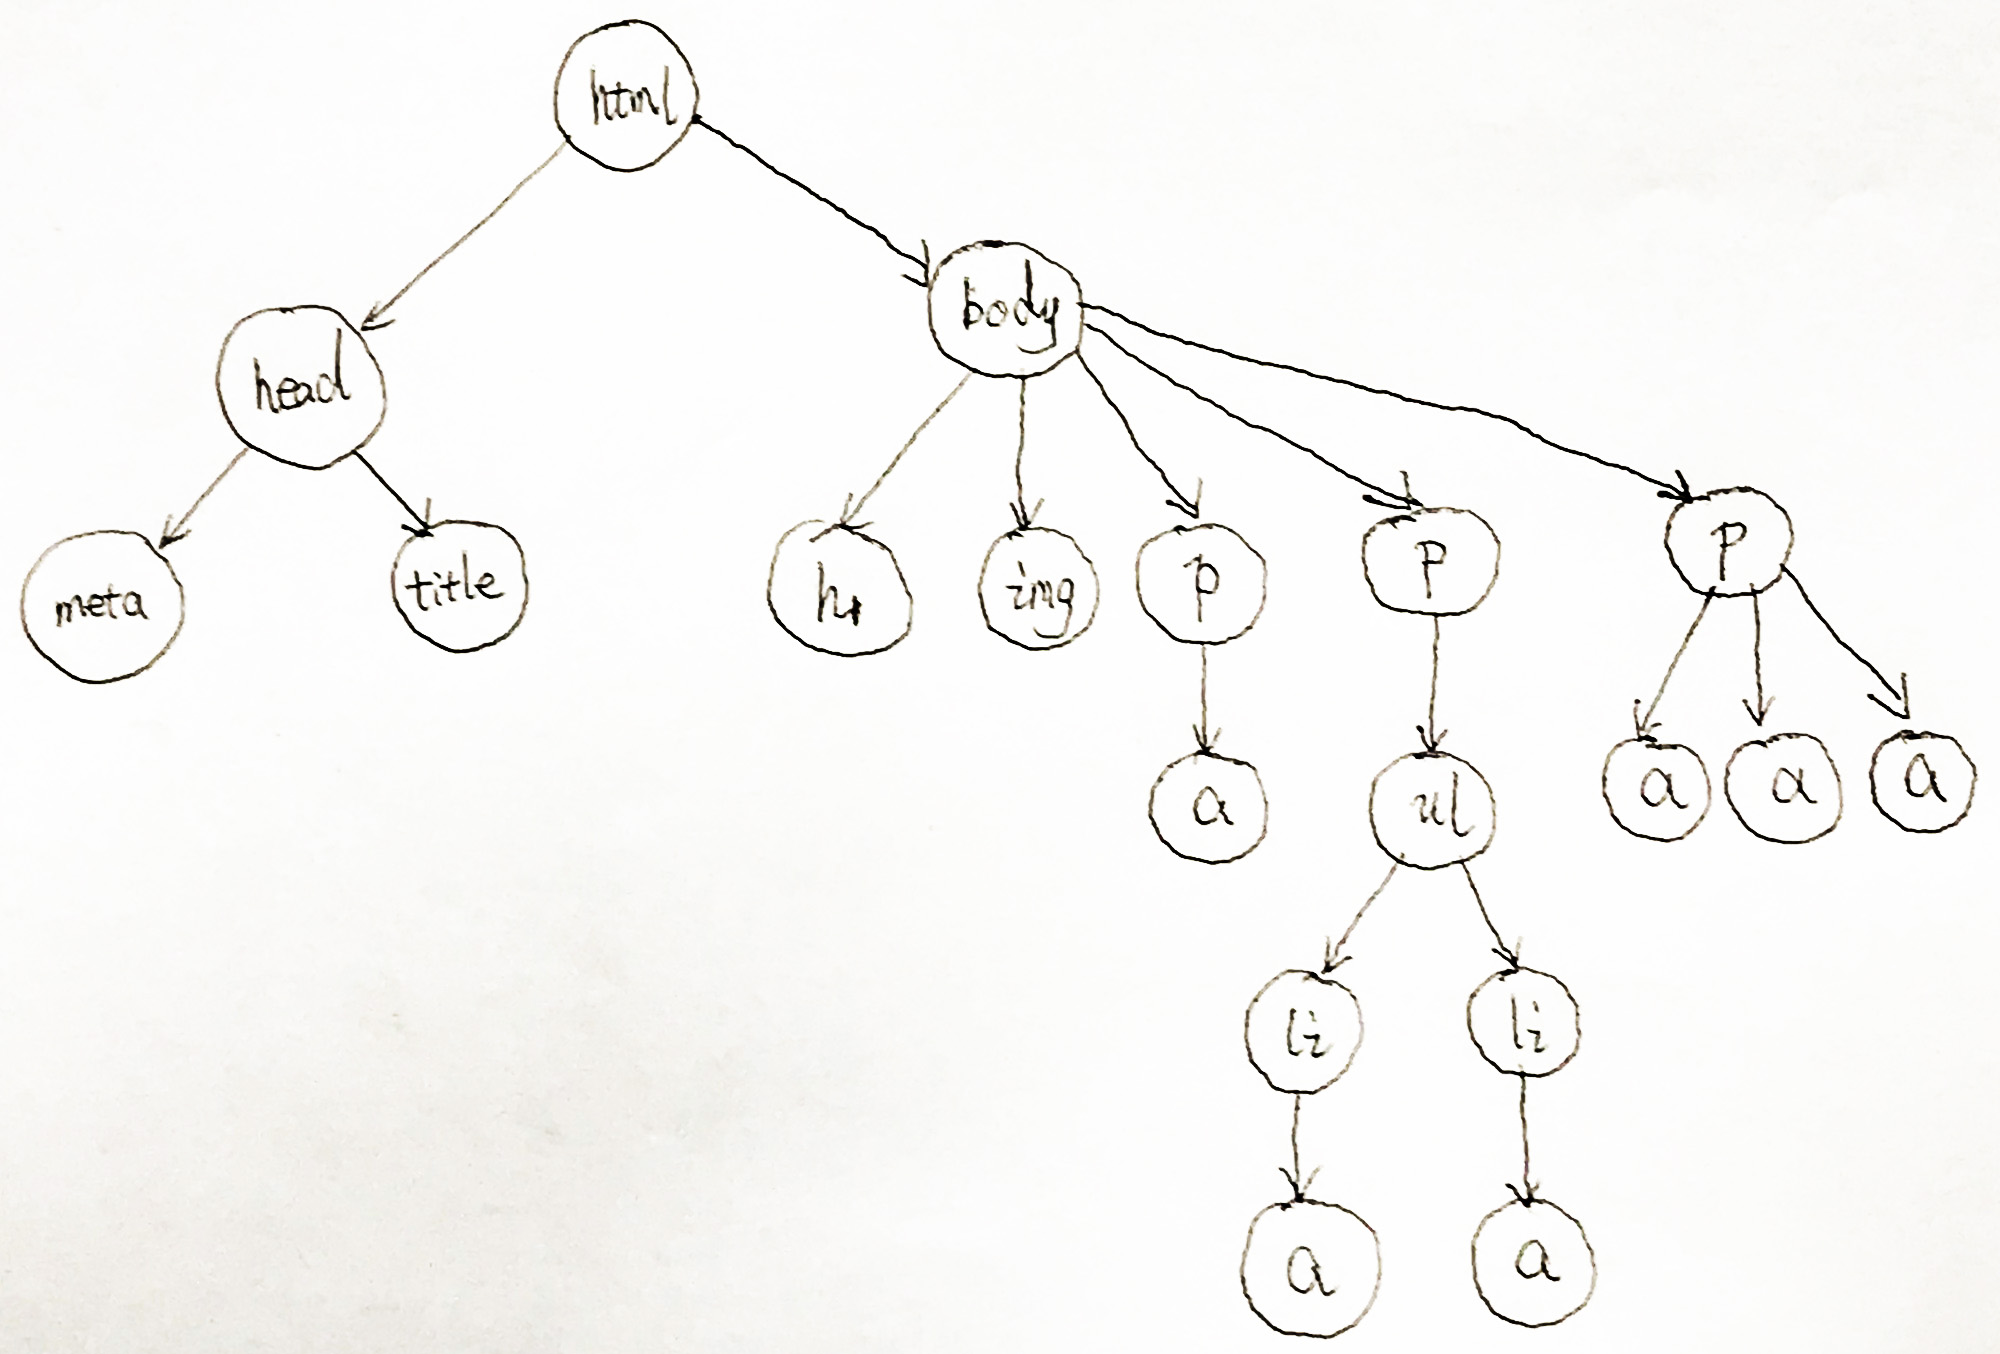 html
body
head
meta
title
h1
img
p
p
p
a
ul
a
a
a
li
li
a
a